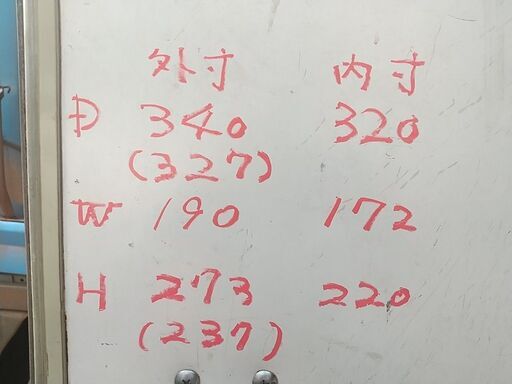 外寸 内寸
D 340 320
(327)
W 190 172
H 273 220
(237)